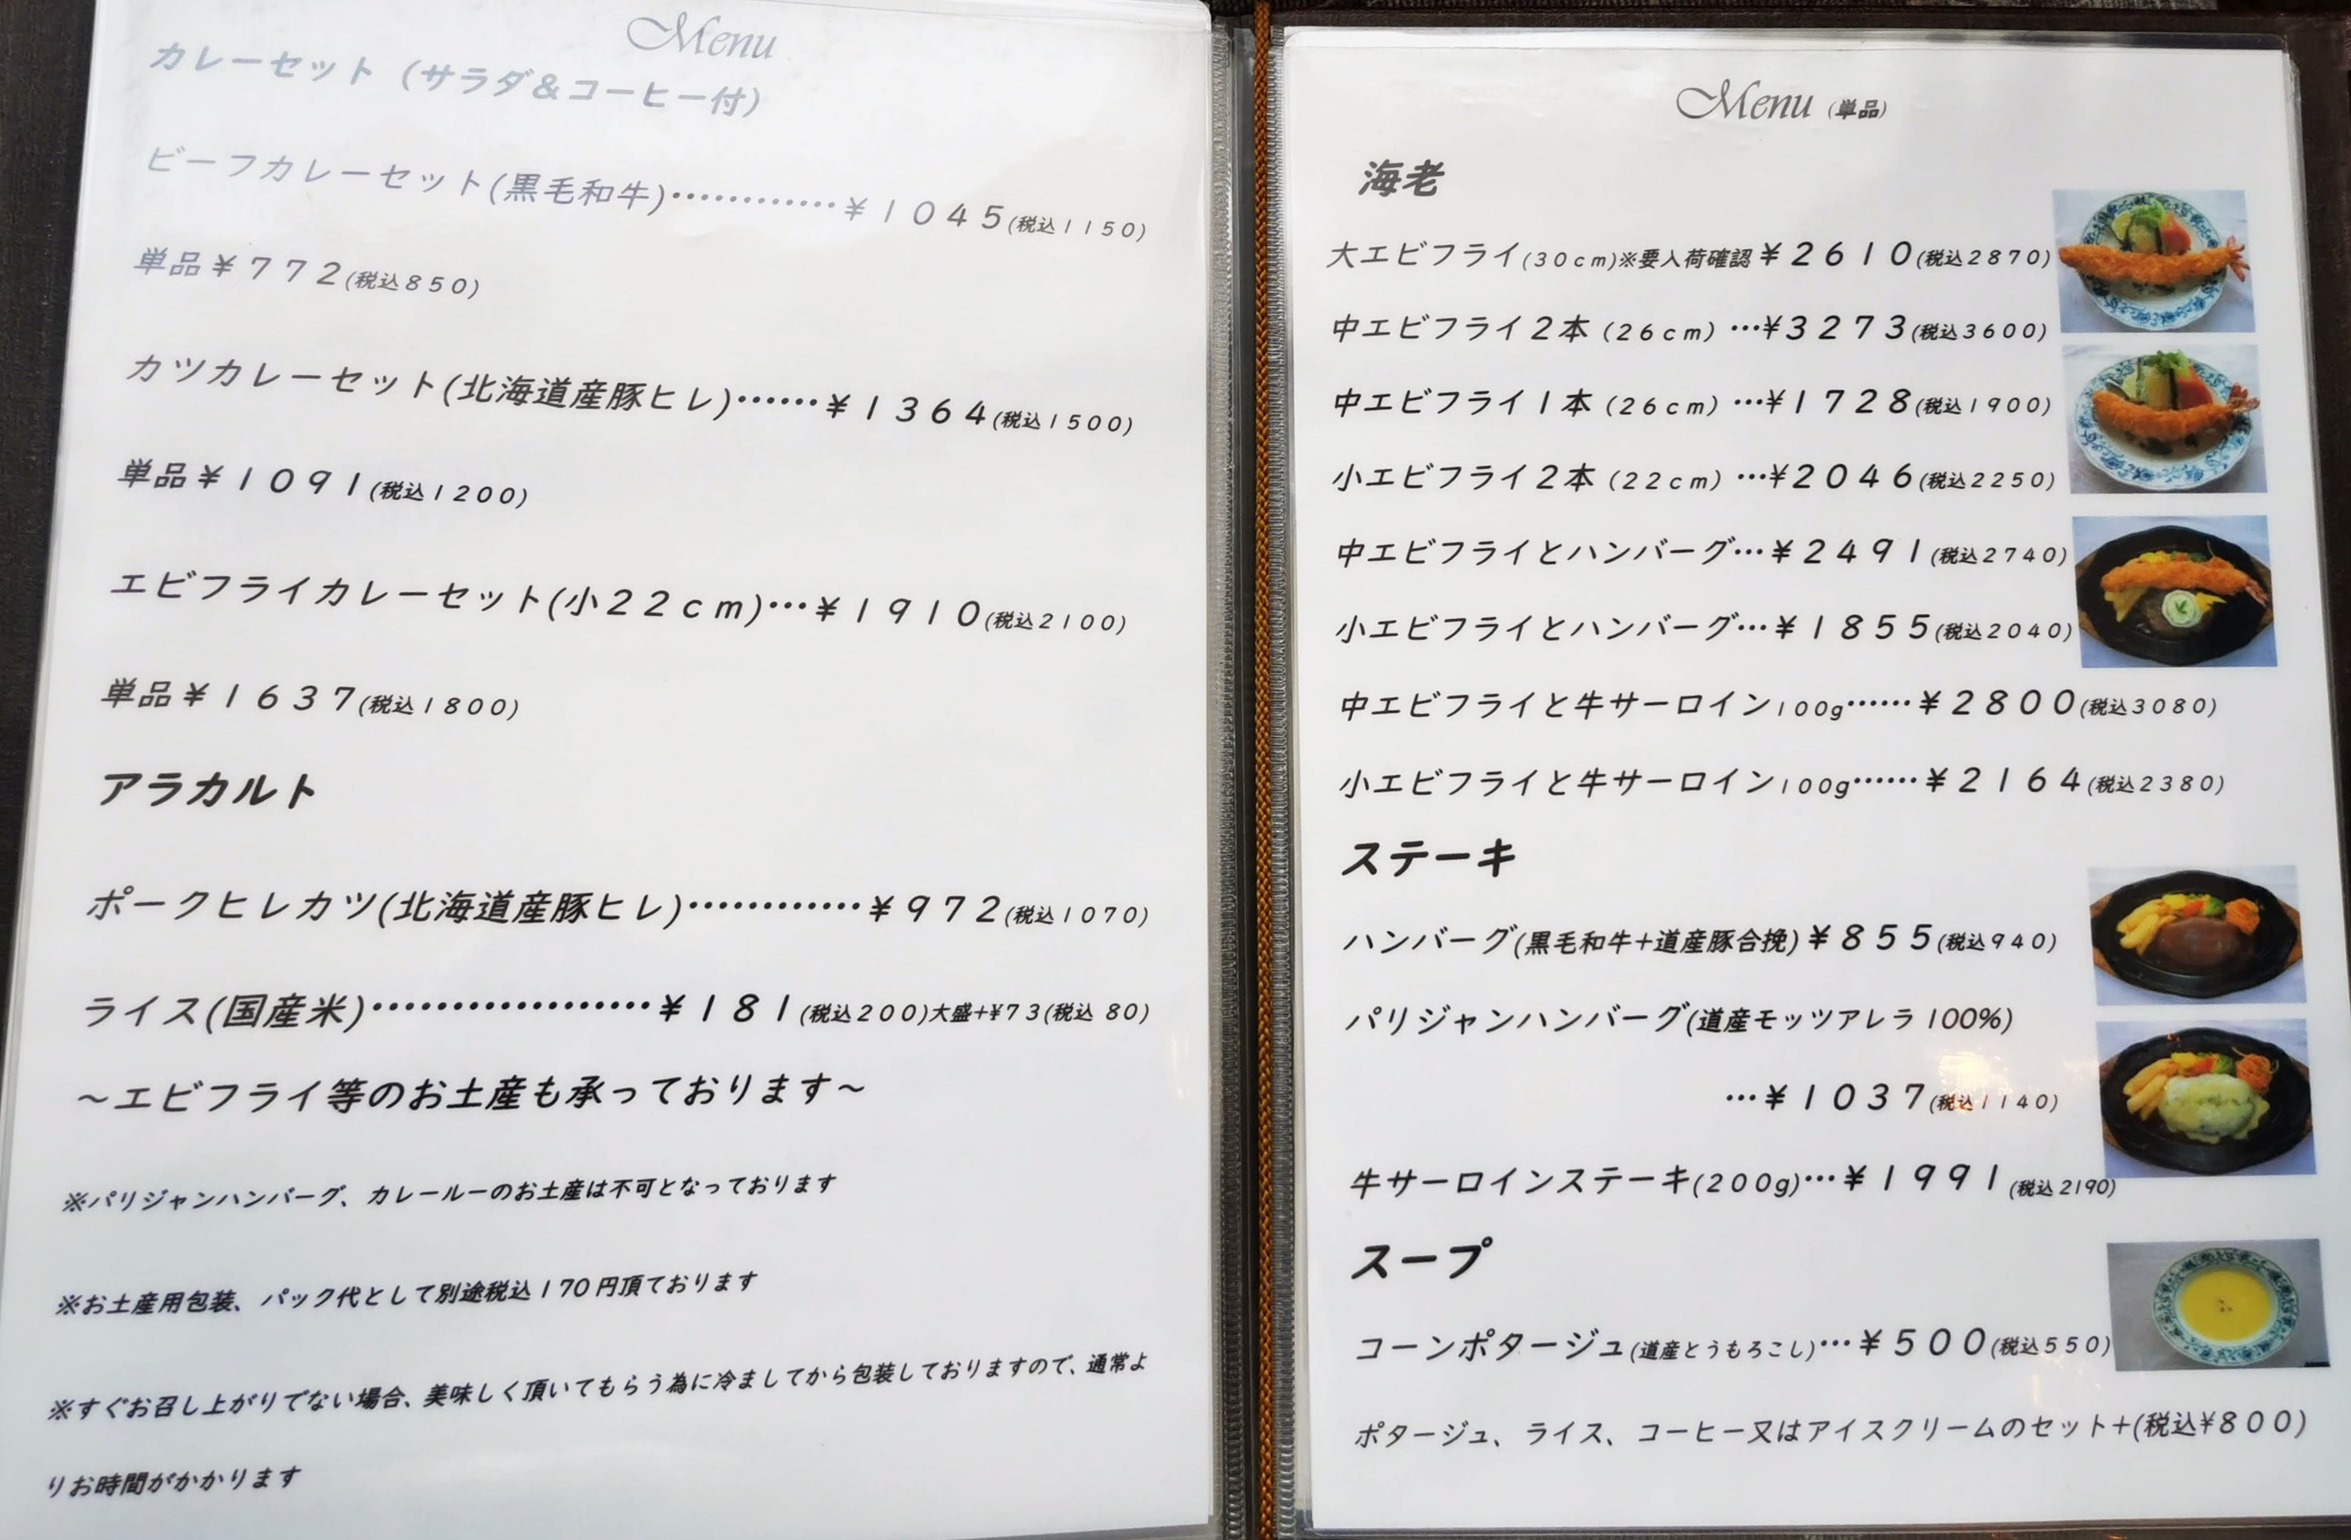 Menu
カレーセット（サラダ&コーヒー付）
ビーフカレーセット(黒毛和牛)…………¥1045(税込1150)
単品¥772(税込850)
カツカレーセット(北海道産豚ヒレ)……¥1364(税込1500)
単品¥1091(税込1200)
エビフライカレーセット(小22cm)…¥1910(税込2100)
単品¥1637(税込1800)
アラカルト
ポークヒレカツ(北海道産豚ヒレ)…………¥972(税込1070)
ライス(国産米)………………¥181(税込200)大盛+¥73(税込 80)
～エビフライ等のお土産も承っております～
※パリジャンハンバーグ、カレールーのお土産は不可となっております
※お土産用包装、パック代として別途税込170円頂ております
※すぐお召し上がりでない場合、美味しく頂いてもらう為に冷ましてから包装しておりますので、通常よ
りお時間がかかります
Menu（単品）
海老
大エビフライ(30cm)※要入荷確認¥2610(税込2870)
中エビフライ2本（26cm）…¥3273(税込3600)
中エビフライ1本（26cm）…¥1728(税込1900)
小エビフライ2本（22cm）…¥2046(税込2250)
中エビフライとハンバーグ…¥2491(税込2740)
小エビフライとハンバーグ…¥1855(税込2040)
中エビフライと牛サーロイン100g……¥2800(税込3080)
小エビフライと牛サーロイン100g……¥2164(税込2380)
ステーキ
ハンバーグ(黒毛和牛+道産豚合挽)¥855(税込940)
パリジャンハンバーグ(道産モッツアレラ100%)
…¥1037(税込1140)
牛サーロインステーキ(200g)…¥1991(税込2190)
スープ
コーンポタージュ(道産とうもろこし)…¥500(税込550)
ポタージュ、ライス、コーヒー又はアイスクリームのセット+(税込¥800)